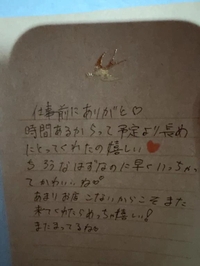 仕事前にありがと♡
時間あるからって予定より長め
にとってくれたの嬉しい♥
なはずなのに早く いっちゃっ
てかわいいねｗ
あまりお店こないからこそまた
来てくれたらめっちゃ嬉しい!
またまってるね